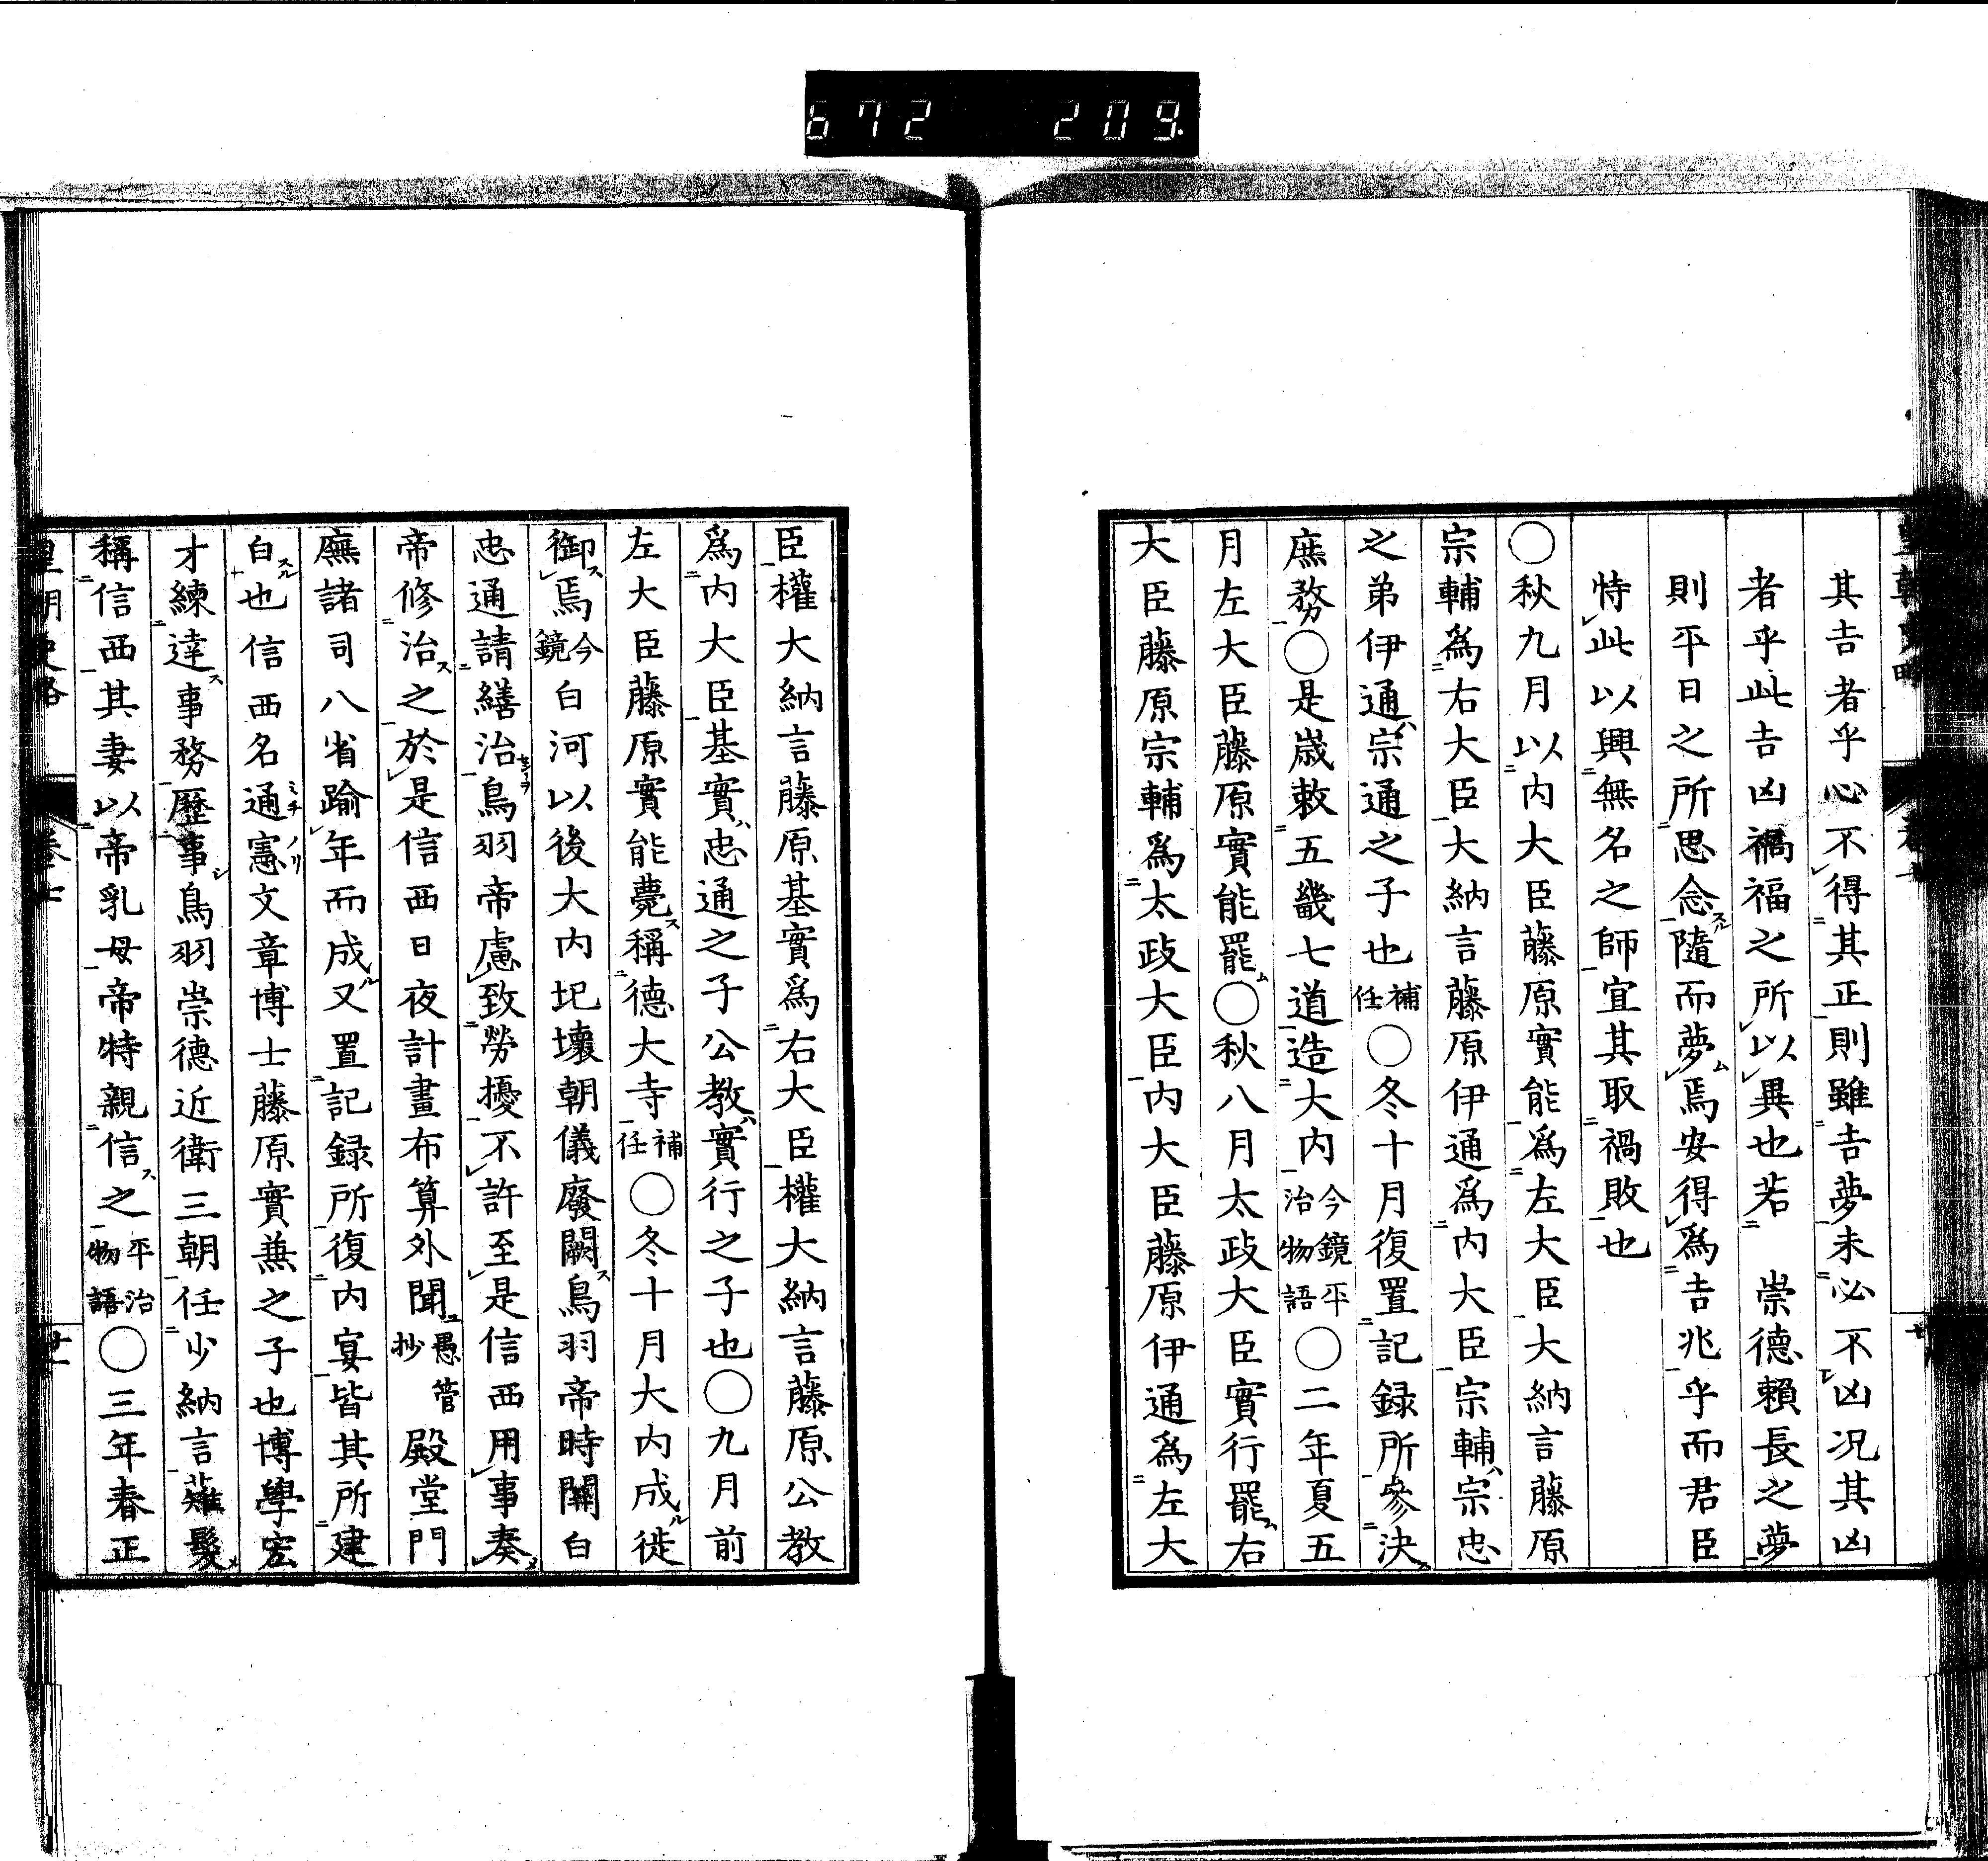 672 209
其吉者乎心不得其正則雖吉夢未必不凶况其凶
者乎此吉凶禍福之所以異也若 崇德賴長之夢
則平日之所思念隨而夢焉安得爲吉兆乎而君臣
恃此以興無名之師宜其取禍敗也
〇秋九月以内大臣藤原實能爲左大臣大納言藤原
宗輔爲右大臣大納言藤原伊通爲内大臣宗輔宗忠
之弟伊通宗通之子也補任〇冬十月復置記録所參決
庶務〇是歲敕五畿七道造大内今鏡平治物語〇二年夏五
月左大臣藤原實能罷〇秋八月太政大臣實行罷右
大臣藤原宗輔爲太政大臣内大臣藤原伊通爲左大
臣權大納言藤原基實爲右大臣權大納言藤原公教
爲内大臣基實忠通之子公教實行之子也〇九月前
左大臣藤原實能薨稱德大寺補任〇冬十月大内成徙
御焉今鏡白河以後大内圮壞朝儀廢闕鳥羽帝時關白
忠通請繕治鳥羽帝慮致勞擾不許至是信西用事奏
帝修治之於是信西日夜計畫布算外聞愚管抄殿堂門
廡諸司八省踰年而成又置記録所復内宴皆其所建
白也信西名通憲文章博士藤原實兼之子也博學宏
才練達事務歷事鳥羽崇德近衛三朝任少納言薙髮
稱信西其妻以帝乳母帝特親信之平治物語〇三年春正
皇朝史略 卷七 廿一